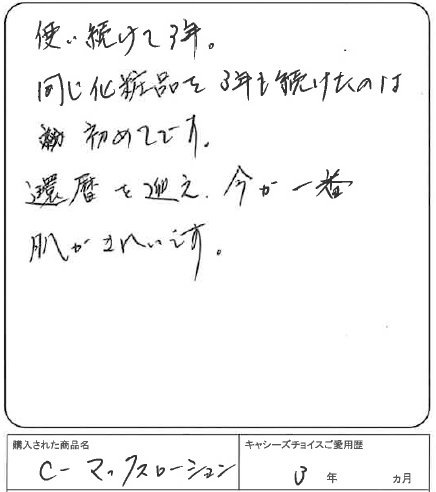 使い続けて3年。
同じ化粧品を3年も続けたのは
初めてです。
還暦を迎え、今が一番
肌がきれいです。
購入された商品名
キャシーズチョイスご愛用歴
C-マックスローション
3年 ヵ月